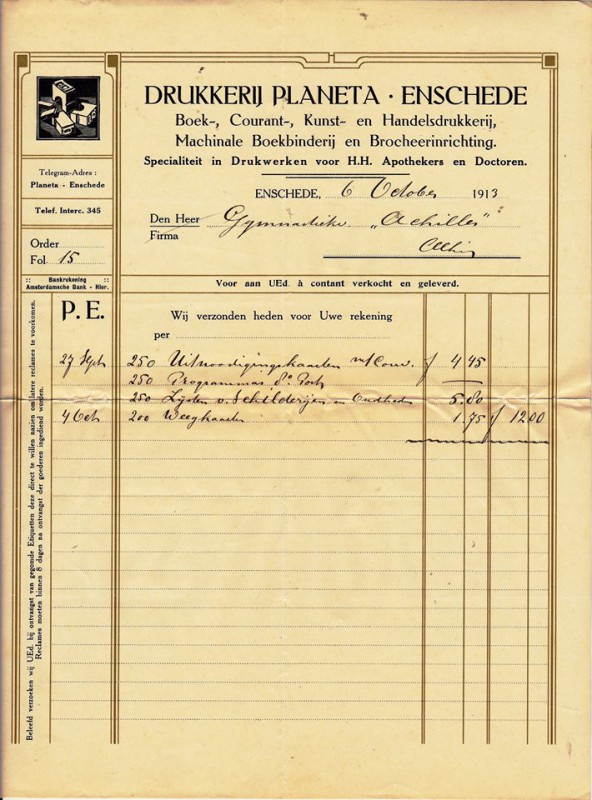 DRUKKERIJ PLANETA · ENSCHEDE
Boek-, Courant-, Kunst- en Handelsdrukkerij,
Machinale Boekbinderij en Brocheerinrichting.
Specialiteit in Drukwerken voor H.H. Apothekers en Doctoren.
Telegram-Adres :
Planeta - Enschede
Telef. Interc. 345
Order
Fol. 15
:: Bankrekening ::
Amsterdamsche Bank - Hier.
ENSCHEDE, 6 October 1913
Den Heer Gymnastiekv. „Achilles"
Firma
Alhier
Voor aan UEd. à contant verkocht en geleverd.
P. E.
Wij verzonden heden voor Uwe rekening
per
27 Sept 250 Uitnoodigingskaarten f 4.45
250 Programmas 8o
250 Lijsten v. Schilderijen en Oudheden 5.80
4 Oct 200 Weegkaarten 1.75 f 12.00
Beleefd verzoeken wij UEd. bij ontvangst van gegomde Etiquetten deze direct te willen nazien om latere reclames te voorkomen.
Reclames moeten binnen 8 dagen na ontvangst der goederen ingediend worden.